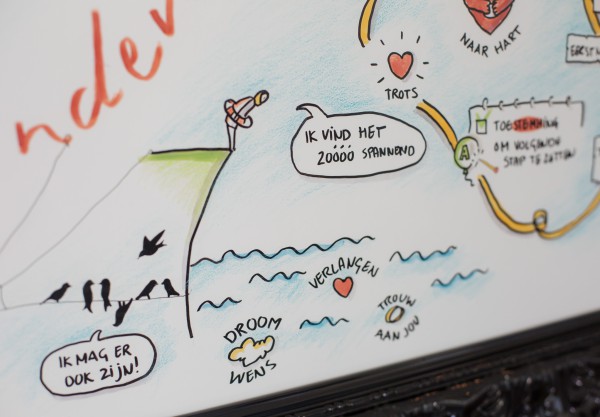 nder
NAAR HART
TROTS
IK VIND HET
ZOOOO SPANNEND
TOESTEMMING
OM VOLGENDE
STAP TE ZETTEN
A
VERLANGEN
TROUW
AAN JOU
DROOM
WENS
IK MAG ER
OOK ZIJN!